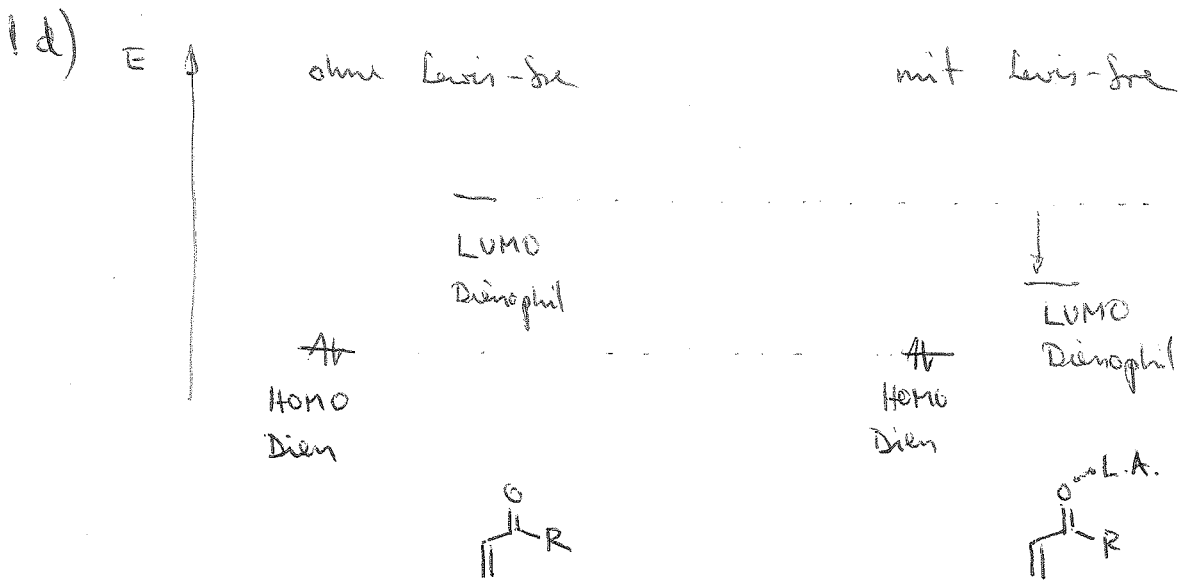 1 d)
E ohne Lewis-Sre mit Lewis-Sre
LUMO
Dienophil
LUMO
Dienophil
HOMO
Dien
HOMO
Dien
O
R
O L.A.
R